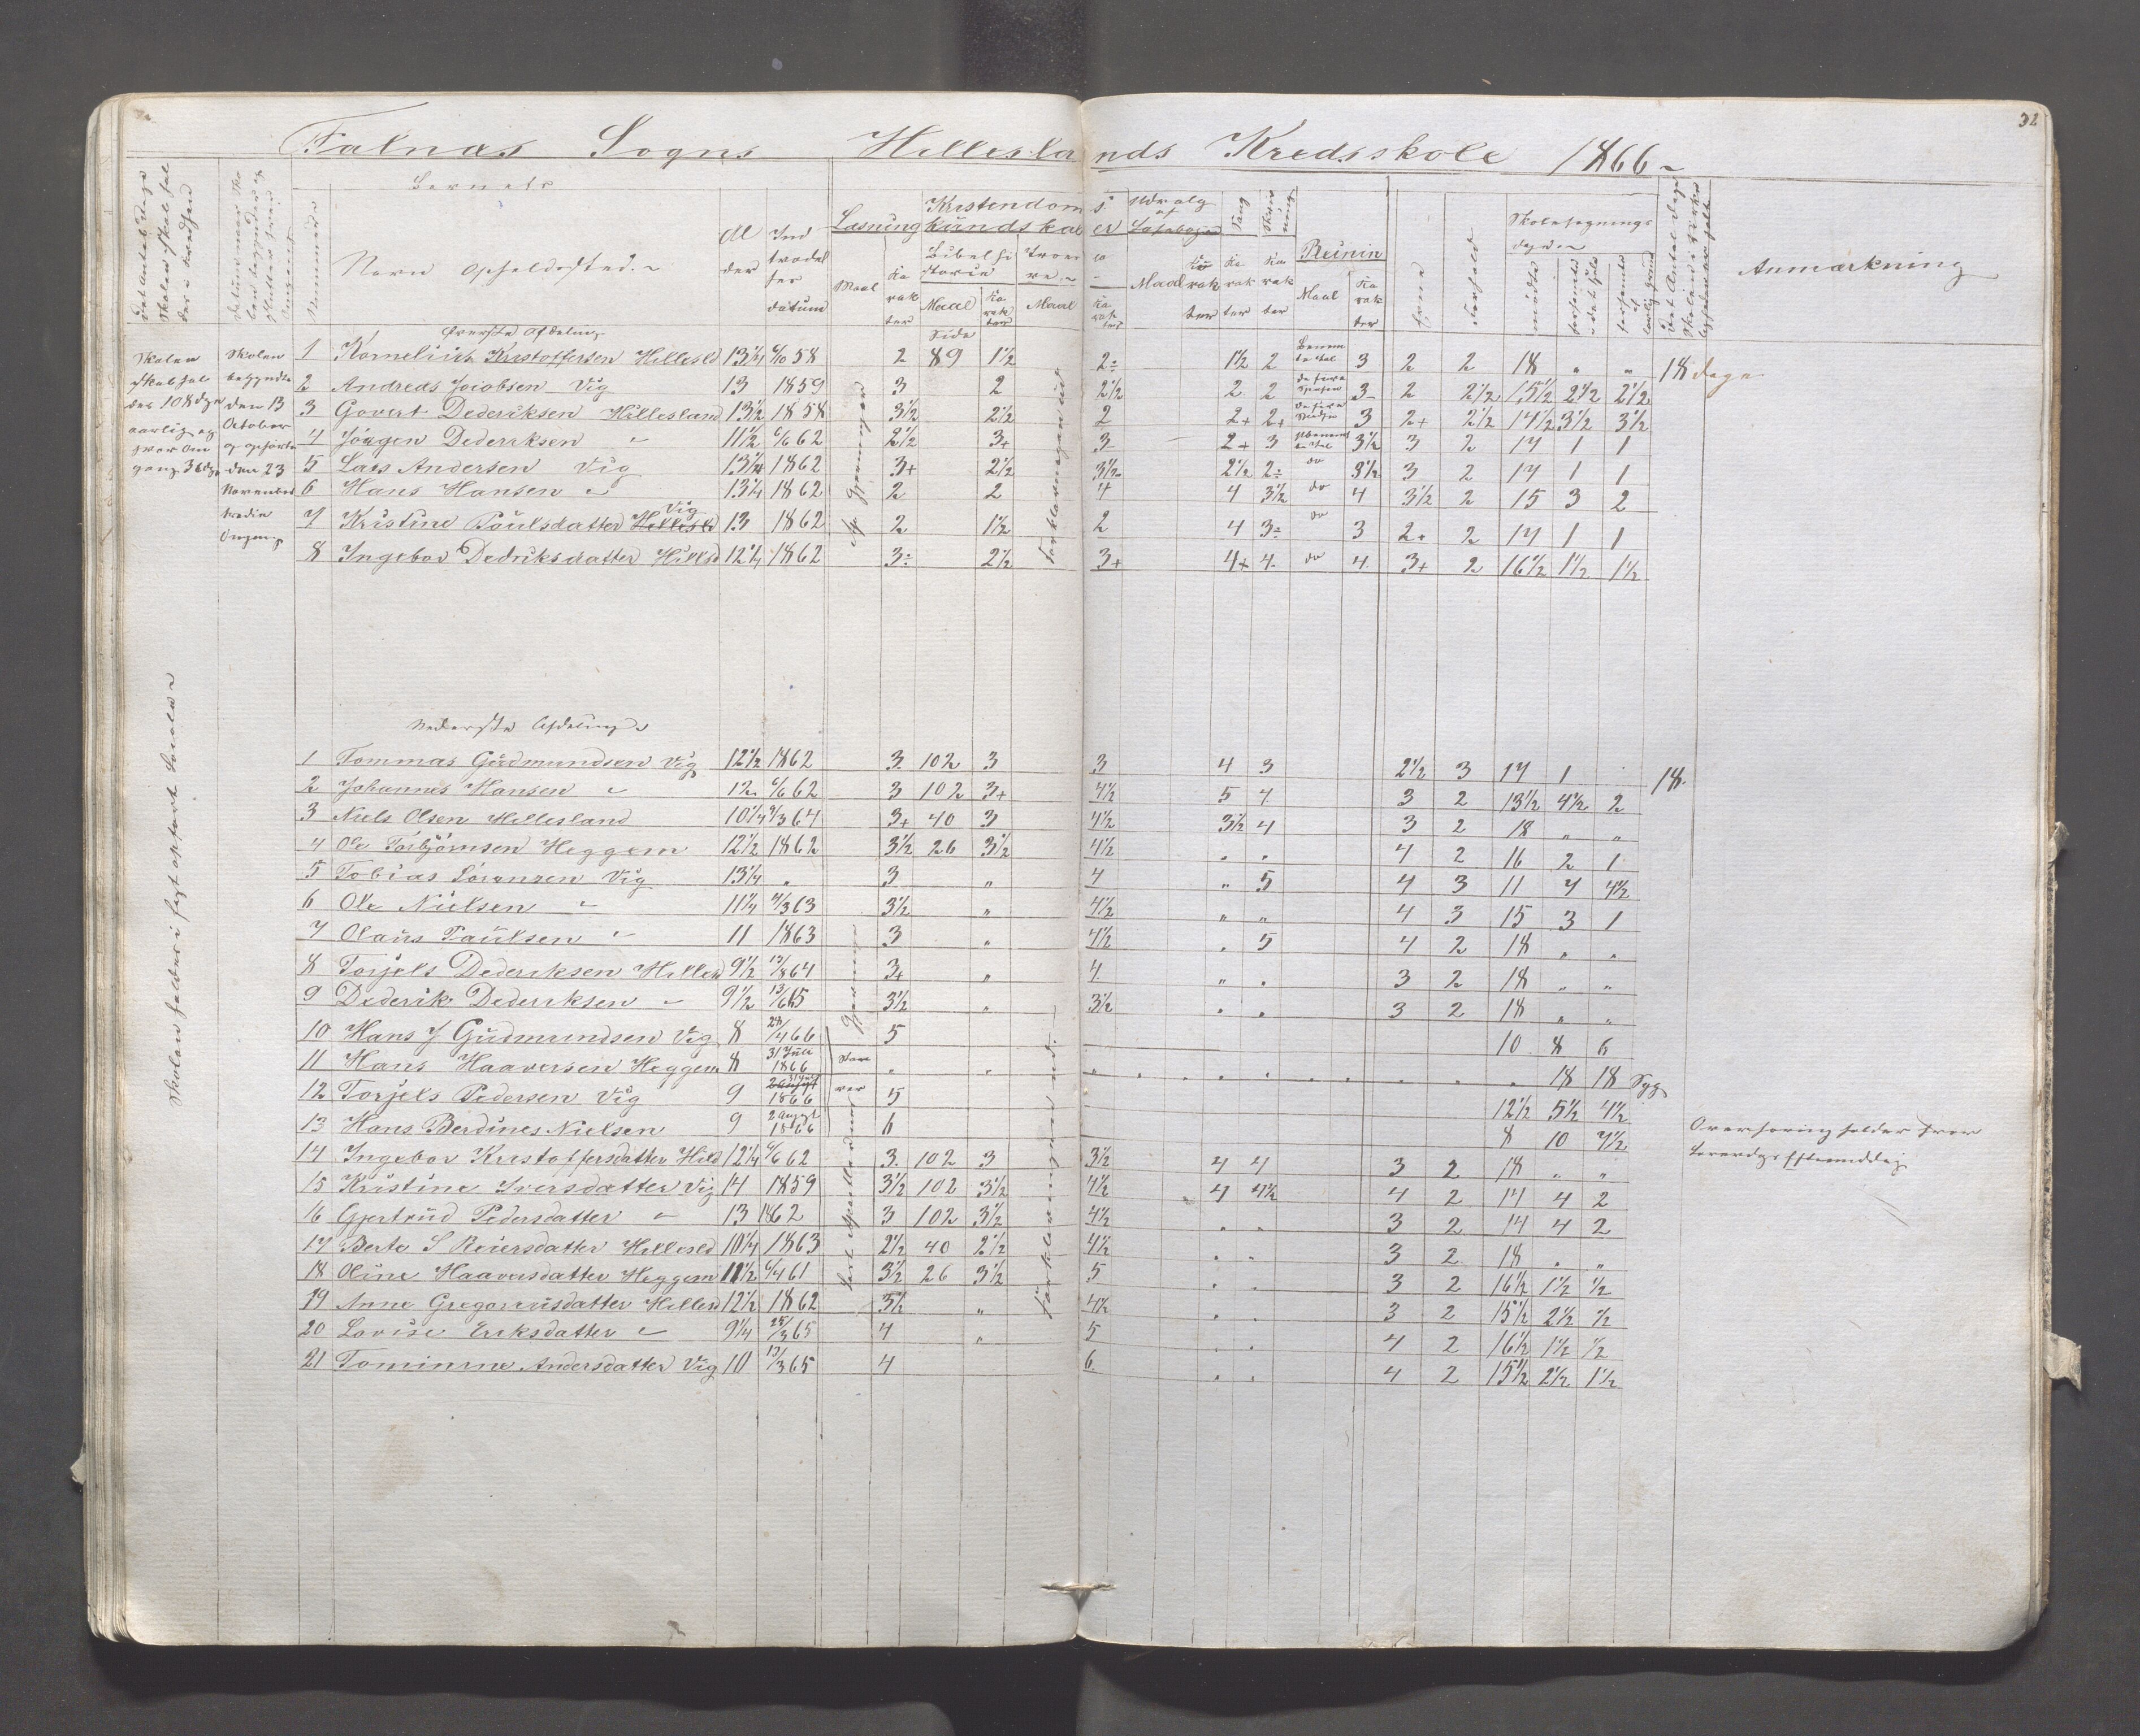 32
Falnæs Sogns Hilleslands Kredsskole 1866
Barnets
Navn Opholdssted
Al der
Ind trædel ses datum
Læsning
Maal
Ka rak ter
Kristendoms kundskaber
Bibelhi storie
Maal
Ka rak ter
Troes læ re
Maal
Ka rak ter
Udvalg af Læsebogen
Maal
Ka rak ter
Sang
Ka rak ter
Skriv ning
Ka rak ter
Reinin
Maal
Ka rak ter
Evne
Forhold
Skolesøgnings dage
mødte
forsømte i det hele
Anmærkning
Øverste Afdeling
Side
Skolen skal hol des 108 dge aarlig og hver Om gang 36 dge
Skolen begyndte den 13 October og ophørte den 23 November tredie Omgang
1 Kornelius Kristoffersen Hillesld 13 1/4 6/10 58 2 89 1 1/2 2÷ 1 1/2 2 3 2 2 18 „ „ 18 dage
2 Andreas Jacobsen Vig 13 1859 3 2 2 1/2 2 2 3- 2 2 1/2 15 1/2 2 1/2 2 1/2
3 Govert Dederiksen Hillesland 13 1/2 1858 3 1/2 2 1/2 2 2+ 2+ 3 2+ 2 1/2 14 1/2 3 1/2 3 1/2
4 Jörgen Dederiksen " 11 1/2 6/6 62 2 1/2 3+ 3 2+ 3 3 1/2 3 2 17 1 1
5 Lars Andersen Vig 13 1/4 1862 3+ 2 1/2 3 1/2 2 1/2 2÷ do 3 1/2 3 2 17 1 1
6 Hans Hansen " 13 1/4 1862 2 2 4 4 3 1/2 do 4 3 1/2 2 15 3 2
7 Kristine Poulsdatter Vig 13 1862 2 1 1/2 2 4 3÷ do 3 2+ 2 17 1 1
8 Ingebor Dedriksdatter Hillsd 12 1/4 1862 3÷ 2 1/2 3+ 4+ 4 do 4 3+ 2 16 1/2 1 1/2 1 1/2
Nederste Afdeling
1 Tommas Gudmundsen Vig 12 1/2 1862 3 102 3 3 4 3 2 1/2 3 17 1 18
2 Johannes Hansen " 12 6/6 62 3 102 3+ 4 1/2 5 4 3 2 13 1/2 4 1/2 2
3 Niels Olsen Hillesland 10 1/4 4/3 64 3+ 40 3 4 1/2 3 1/2 4 3 2 18 „ „
4 Ole Torbjörnsen Heggem 12 1/2 1862 3 1/2 26 3 1/2 4 1/2 . . 4 2 16 2 1
5 Tobias Sörensen Vig 13 1/4 „ 3 „ 4 „ 5 4 3 11 7 4 1/2
6 Ole Nielsen " 11 1/4 4/3 63 3 1/2 „ 4 1/2 „ „ 4 3 15 3 1
7 Olaus Paulsen " 11 1863 3 „ 4 1/2 . 5 4 2 18 „ „
8 Torjels Dederiksen Hillesd 9 1/2 12/8 64 3+ „ 4 „ . 3 2 18 „ „
9 Dederik Dederiksen " 9 1/2 13/6 65 3 1/2 „ 3 1/2 . . 3 2 18 „ „
10 Hans J Gudmundsen Vig 8 24/4 66 5 10 8 6
11 Hans Haaversen Heggem 8 31 Juli 1866 . . . 18 18 Syg
12 Torjels Pedersen Vig 9 1866 5 12 1/2 5 1/2 4 1/2
13 Hans Berdines Nielsen 9 2 august 1866 6 8 10 7 1/2
14 Ingebor Kristoffersdatter Hild 12 1/4 6/6 62 3 102 3 3 1/2 4 4 3 2 18 „ „
15 Kristine Iversdatter Vig 14 1859 3 1/2 102 3 1/2 4 1/2 4 4 1/2 4 2 14 4 2
16 Gjertrud Pedersdatter " 13 1862 3 102 3 1/2 4 1/2 . . 3 2 14 4 2
17 Berte S Reiersdatter Hillesld 10 1/4 1863 2 1/2 40 2 1/2 4 1/2 . . 3 2 18 „ „
18 Oline Haaversdatter Heggem 11 1/2 6/4 61 3 1/2 26 3 1/2 5 . . 3 2 16 1/2 1 1/2 1/2
19 Anne Gregoriusdatter Hillesd 12 1/2 1862 3 1/2 „ 4 1/2 . . 3 2 15 1/2 2 1/2 1/2
20 Lovise Eriksdatter " 9 1/4 25/3 65 4 „ 5 . . 4 2 16 1/2 1 1/2 1/2
21 Tominne Andersdatter Vig 10 13/3 65 4 6 . . 4 2 15 1/2 2 1/2 1 1/2